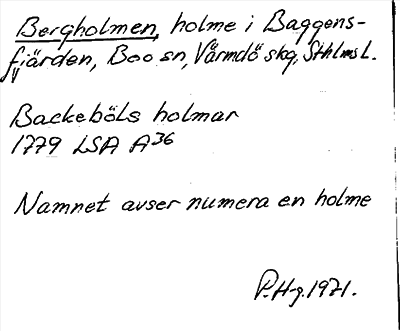 Bergholmen, holme i Baggens-
fjärden, Boo sn, Värmdö skg, Sthlms L.
Backeböls holmar
1779 LSA A36
Namnet avser numera en holme
P.H-g. 1971.